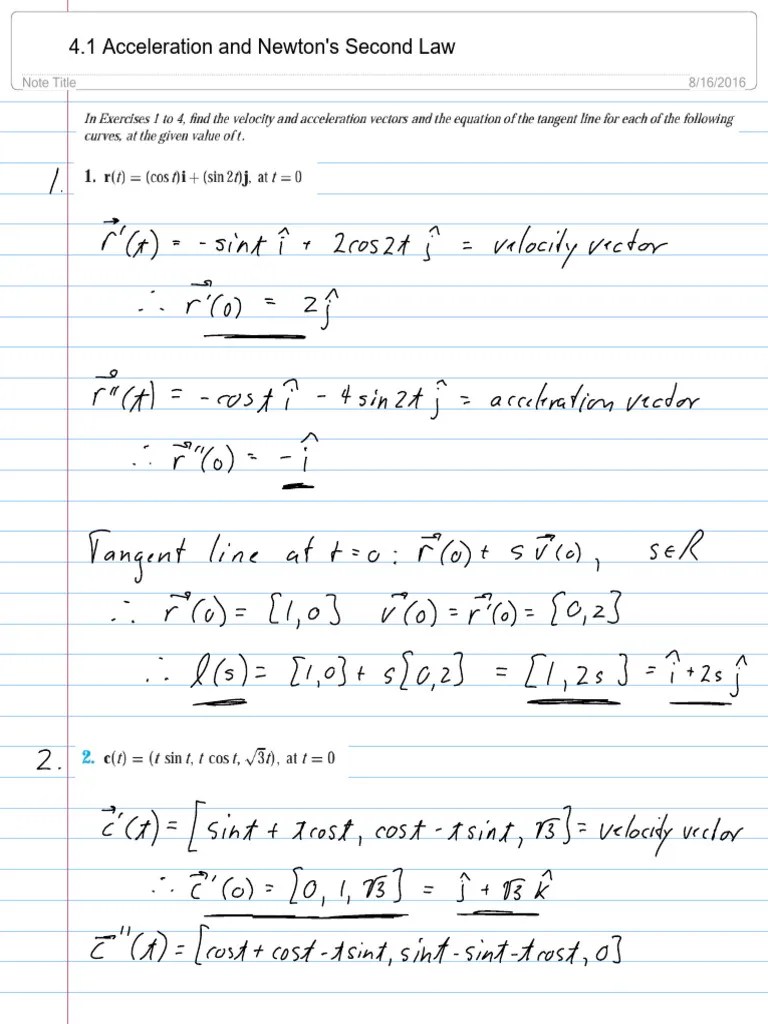 4.1 Acceleration and Newton's Second Law
Note Title 8/16/2016
In Exercises 1 to 4, find the velocity and acceleration vectors and the equation of the tangent line for each of the following
curves, at the given value of t.
1. 1. r(t) = (cos t)i + (sin 2t)j, at t = 0
r⃗'(t) = -sint î + 2cos2t ĵ = velocity vector
∴ r⃗'(0) = 2ĵ
r⃗''(t) = -cost î - 4sin2t ĵ = acceleration vector
∴ r⃗''(0) = -î
Tangent line at t=0: r⃗(0) + s v⃗(0), s∈R
∴ r⃗(0) = [1,0] v⃗(0) = r⃗'(0) = [0,2]
∴ l(s) = [1,0] + s[0,2] = [1, 2s] = î + 2s ĵ
2. 2. c(t) = (t sin t, t cos t, √3t), at t = 0
c⃗'(t) = [sint + tcost, cost - tsint, √3] = velocity vector
∴ c⃗'(0) = [0, 1, √3] = ĵ + √3 k̂
c⃗''(t) = [cost + cost - tsint, sint - sint - tcost, 0]